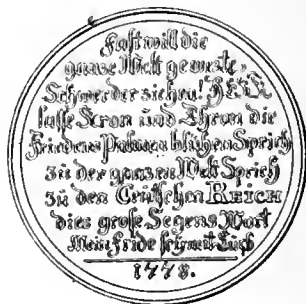 Fast will die
ganze Welt gewezte,
Schwerder ziehen! HERR
lasse Kron und Thron die
Friedens Palmen blühen Sprich
zu der ganzen Welt Sprich
zu den Teutschen REICH
dies grose Segens Wort
Mein fride sey mit Euch
1778.